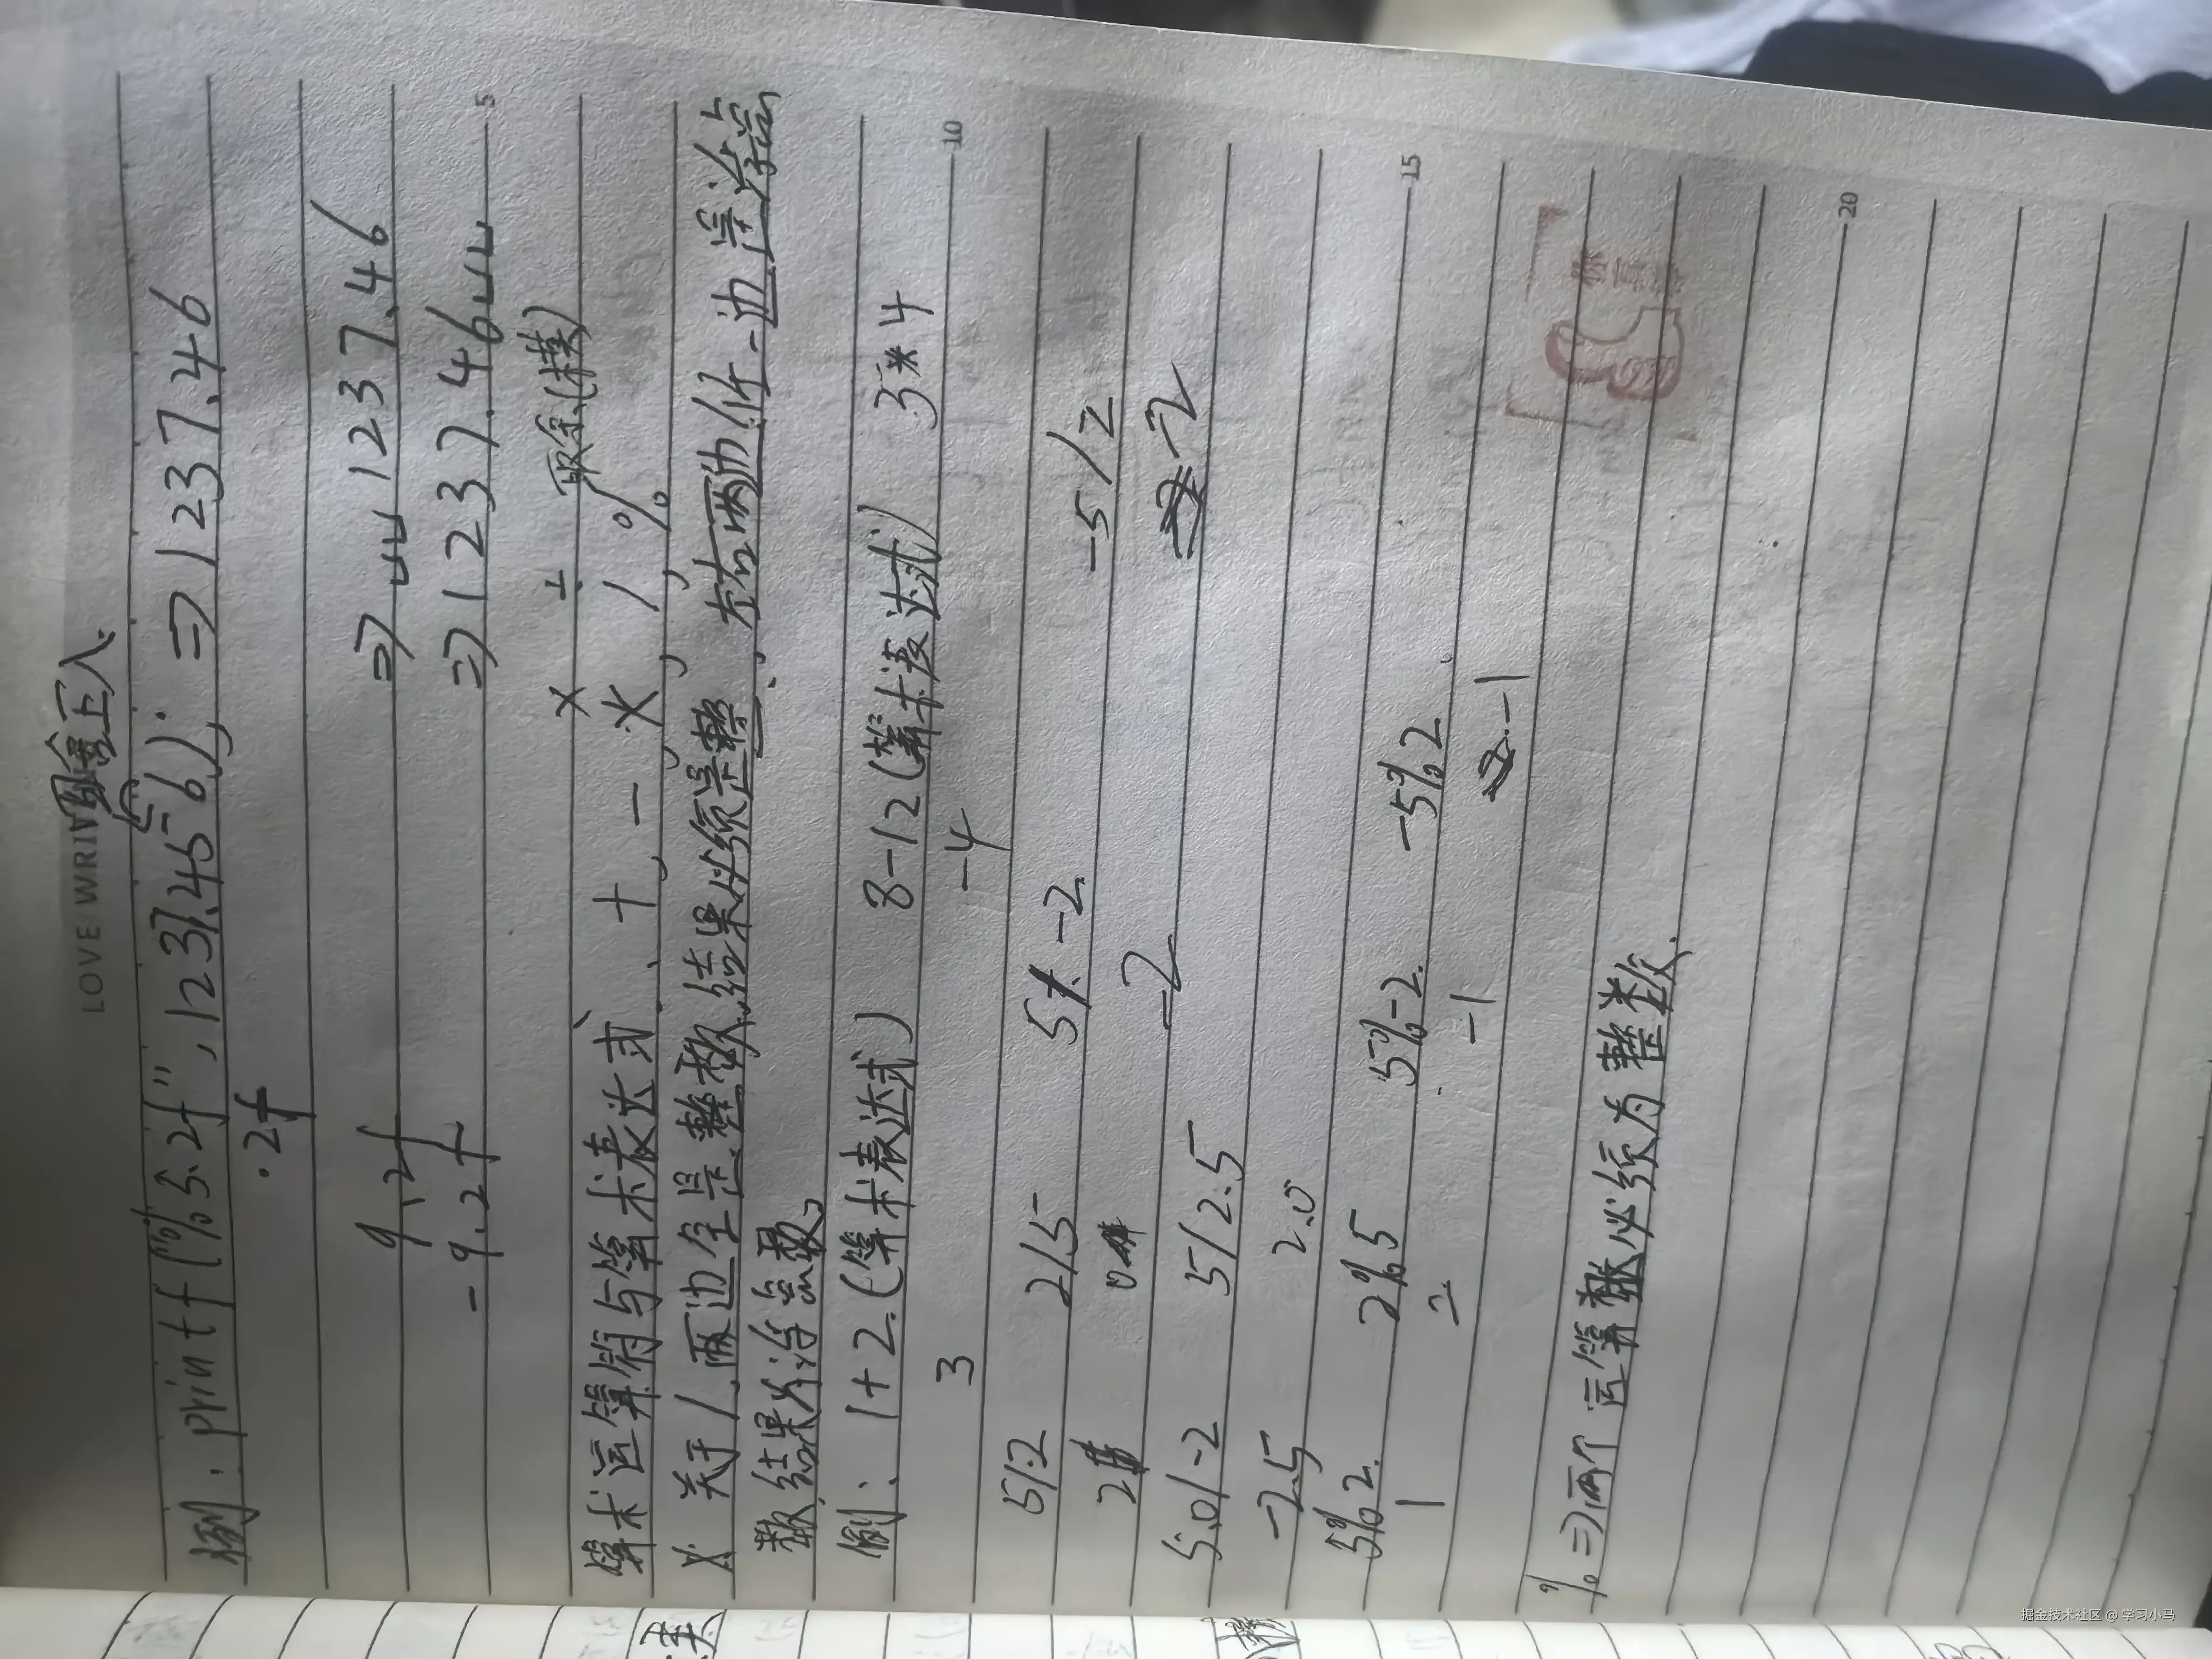 LOVE WRI
四舍五入
例: printf("%5.2f", 1237.456); => 1237.46
.2f
9.2f => ␣␣1237.46
-9.2f => 1237.46␣␣
5
× ÷ 取余(模)
算术运算符与算术表达式、 +, -, *, /, %
关于/,两边全是整数,结果必须是整 左右两边任一边是浮点
数 结果为浮点数。
例: 1+2 (算术表达式) 8-12 (算术表达式) 3*4
3 -4
10
5/2 2/5 5/-2 -5/2
2 0 -2 -2
5.0/-2 5/2.5
-2.5 2.0
5%2 2%5 5%-2 -5%2
1 2 -1 -1
15
% => 两个运算数必须为整数.
20
掘金技术社区 @ 学习小马